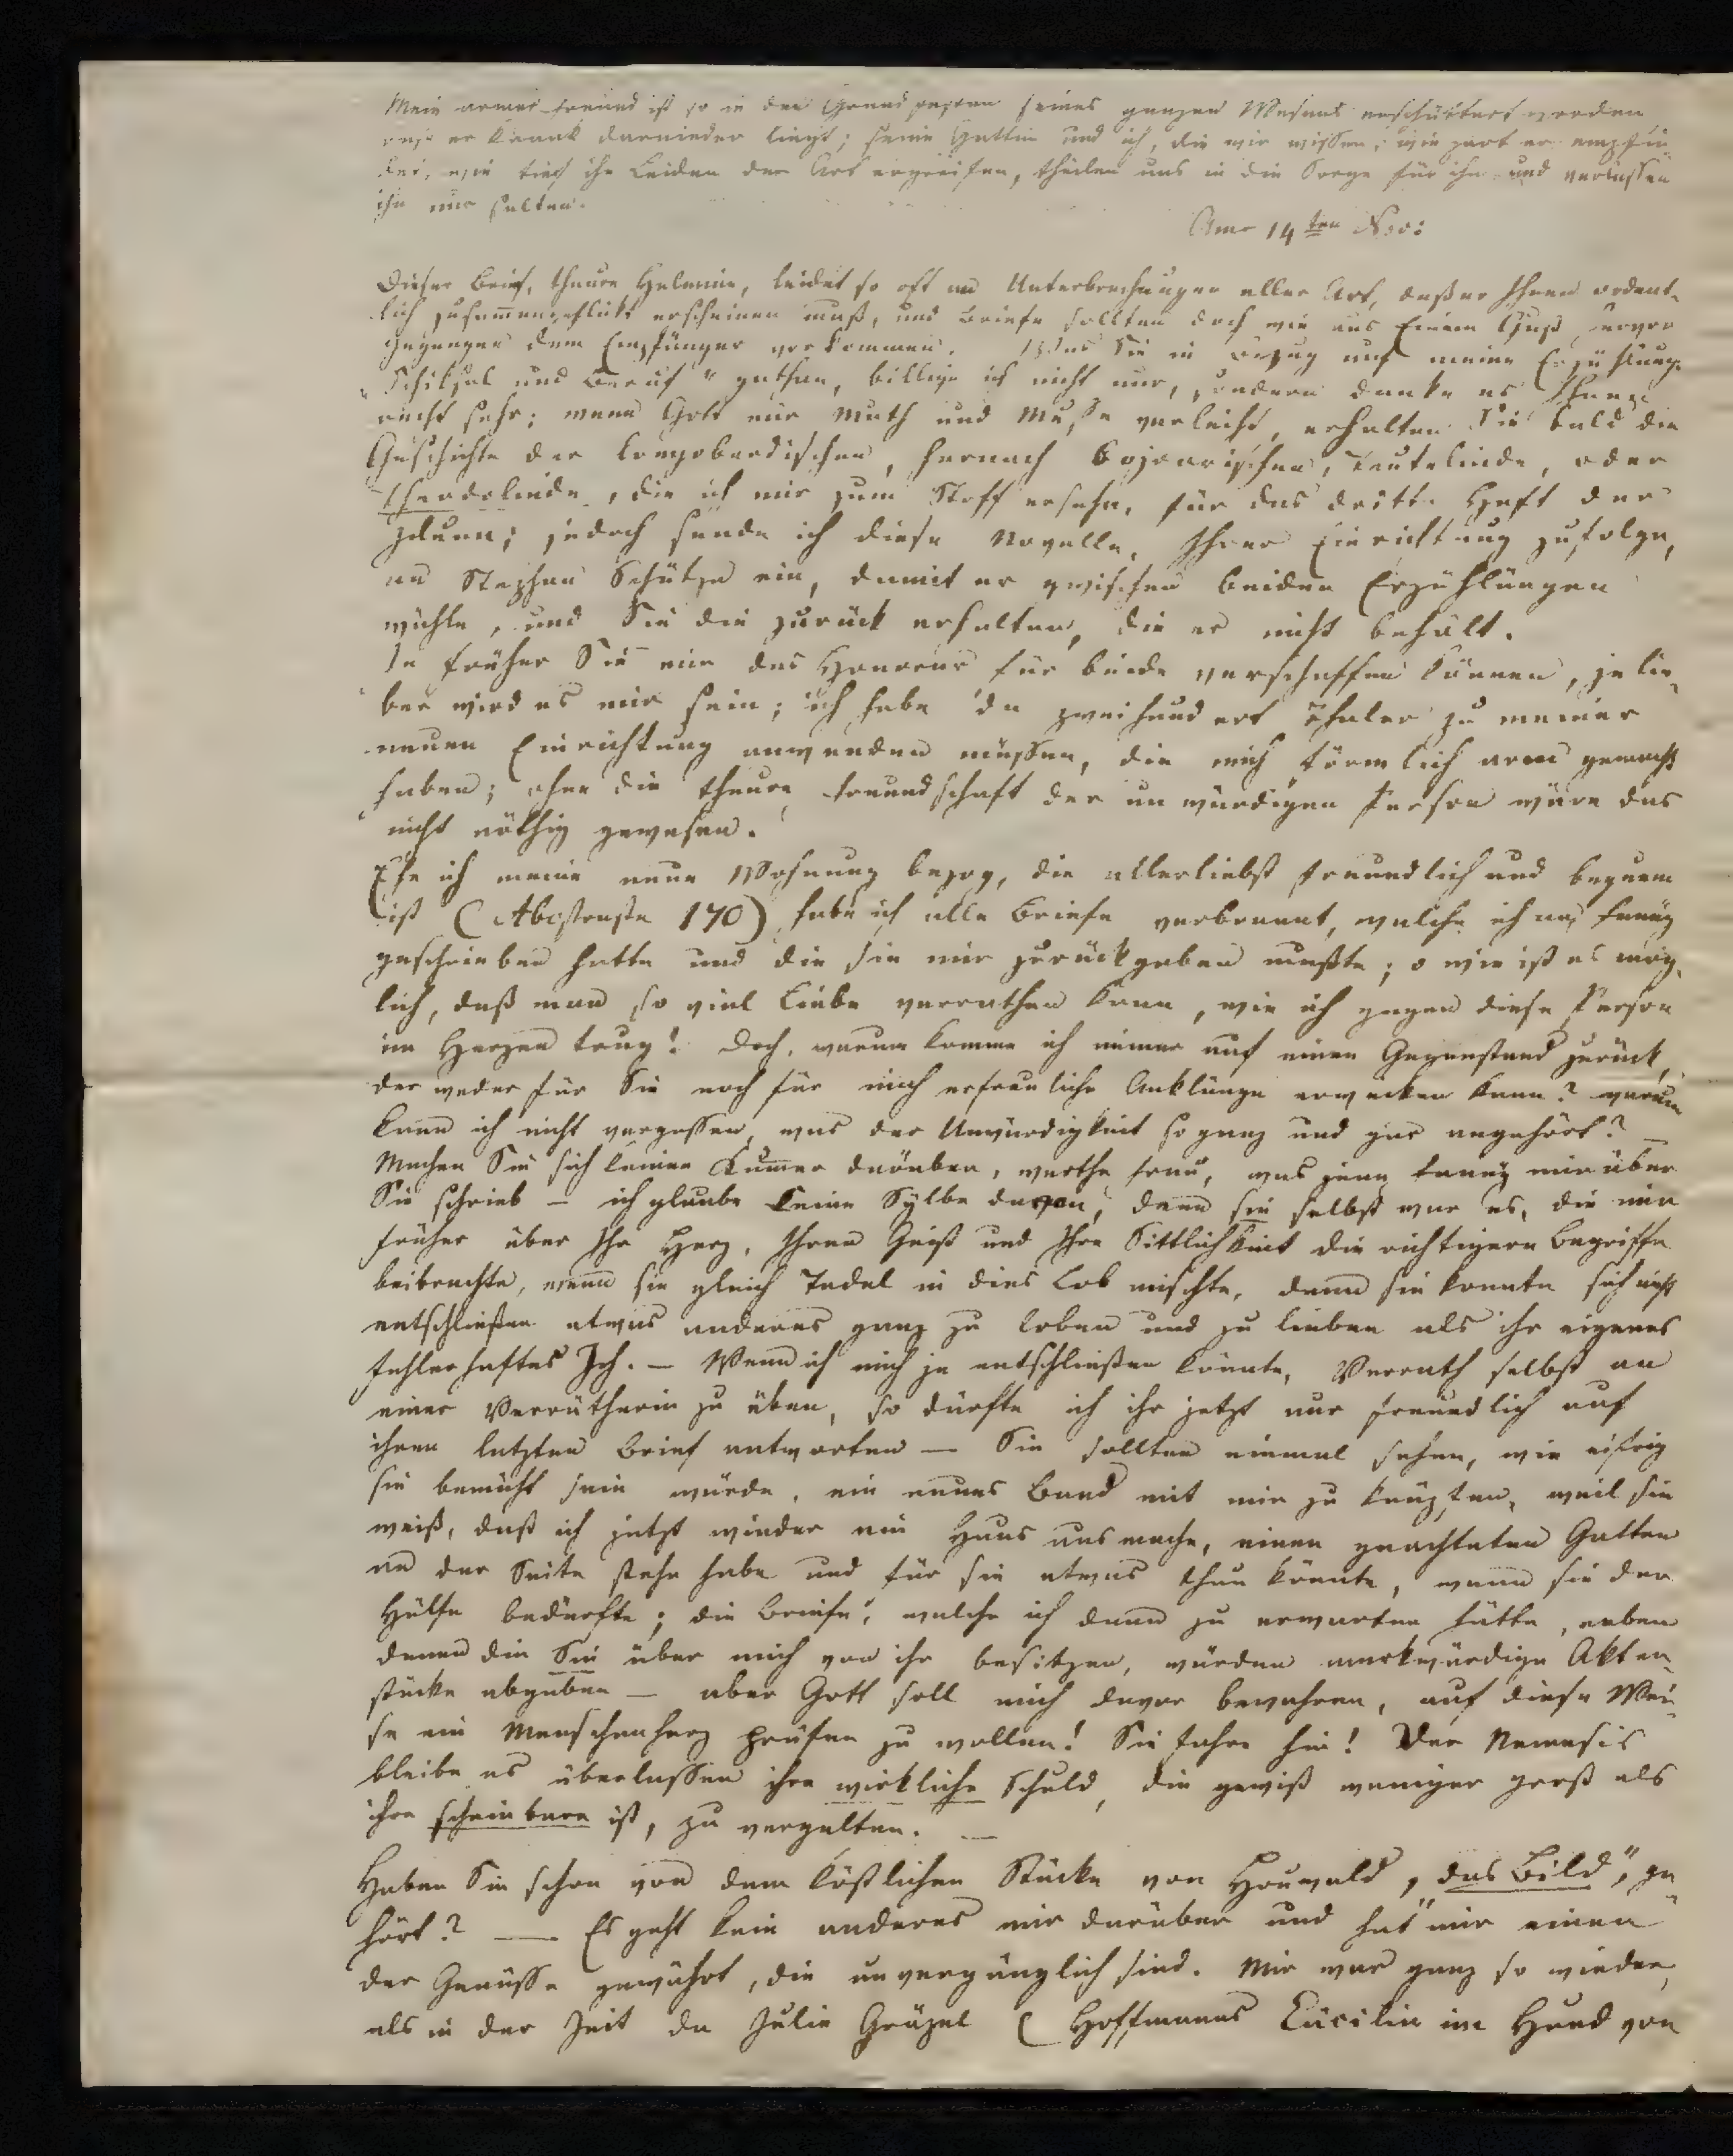 Mein armer Freund ist so in den Grundfesten seines ganzen Wesens erschüttert worden,
daß er krank darnieder liegt; seine Gattin und ich, die wir wissen, wie zart er empfin-
det, wie tief ihn Leiden der Art ergreifen, theilen uns in die Sorge für ihn und verlassen
ihn nur selten.
Am 14ten Nov:
Dieser Brief, theure Helmine, leidet so oft an Unterbrechungen aller Art, daß er Ihnen ordent-
lich zusam̅engeflickt erscheinen muß, und Briefe sollten doch wie aus Einem Guß hervor
gegangen dem Empfänger vorkommen. Was Sie in Bezug auf meine Erzählung
„Schiksal und Beruf" gethan, billige ich nicht nur, sondern danke es Ihnen
recht sehr; wenn Gott mir Muth und Muße verleiht, erhalten Sie bald die
Geschichte der longobardischen, hernach bojoarischen, Teutelinde, oder
Theodolinde, die ich mir zum Stoff ersehn, für das dritte Heft der
Iduna; jedoch sende ich diese Novelle, Ihrer Einrichtung zufolge,
an Stephan Schütze ein, damit er zwischen beiden Erzählungen
wähle, und Sie die zurück erhalten, die er nicht behält.
Je früher Sie mir das Honorar für beide verschaffen können, je lie-
ber wird es mir sein; ich habe da zweihundert Thaler zu meiner
neuen Einrichtung anwenden müssen, die mich förmlich arm gemacht
haben; ohne die theure Freundschaft der unwürdigen Person wäre das
nicht nöthig gewesen.
Ehe ich meine neue Wohnung bezog, die allerliebst freundlich und bequem
ist (170) habe ich alle Briefe verbrannt, welche ich an Fanny
geschrieben hatte und die sie mir zurückgeben mußte; o wie ist es mög-
lich, daß man so viel Liebe verrathen kann, wie ich gegen diese Person
im Herzen trug! Doch, warum komme ich immer auf einen Gegenstand zurück,
der weder für Sie noch für mich erfreuliche Anklänge erwecken kann? warum
kann ich nicht vergessen, was der Unwürdigkeit so ganz und gar angehört? —
Machen Sie sich keinen Kum̅er darüber, werthe Frau, was jene Fanny mir über
Sie schrieb — ich glaube keine Sylbe davon, denn sie selbst war es, die mir
früher über Ihr Herz, Ihren Geist und Ihre Sittlichkeit die richtigern Begriffe
beibrachte, wenn sie gleich Tadel in dies Lob mischte, denn sie konnte sich nicht
entschließen etwas anderes ganz zu loben und zu lieben als ihr eigenes
fehlerhaftes Ich. — Wenn ich mich je entschließen könnte, Verrath selbst an
einer Verrätherin zu üben, so dürfte ich ihr jetzt nur freundlich auf
ihren letzten Brief antworten — Sie sollten einmal sehen, wie eifrig
sie bemüht sein würde, ein neues Band mit mir zu knüpfen, weil sie
weiß, daß ich jetzt wieder ein Haus ausmache, einen geachteten Gatten
an der Seite stehn habe und für sie etwas thun könnte, wenn sie der
Hülfe bedürfte; die Briefe, welche ich dann zu erwarten hätte, neben
denen die Sie über mich von ihr besitzen, würden merkwürdige Akten-
stücke abgeben — aber Gott soll mich davor bewahren, auf diese Wei-
se ein Menschenherz prüfen zu wollen! Sie fahre hin! Der Nemesis
bleibe es überlassen ihre wirkliche Schuld, die gewiß weniger groß als
ihre scheinbare ist, zu vergelten. —
Haben Sie schon von dem köstlichen Stücke von Houwald, „das Bild", ge-
hört? — Es geht kein anderes mir darüber und hat mir einen
der Genüsse gewährt, die unvergänglich sind. Mir war ganz so wieder,
als in der Zeit da Julie (Hoffmanns Cäcilia im Hund von